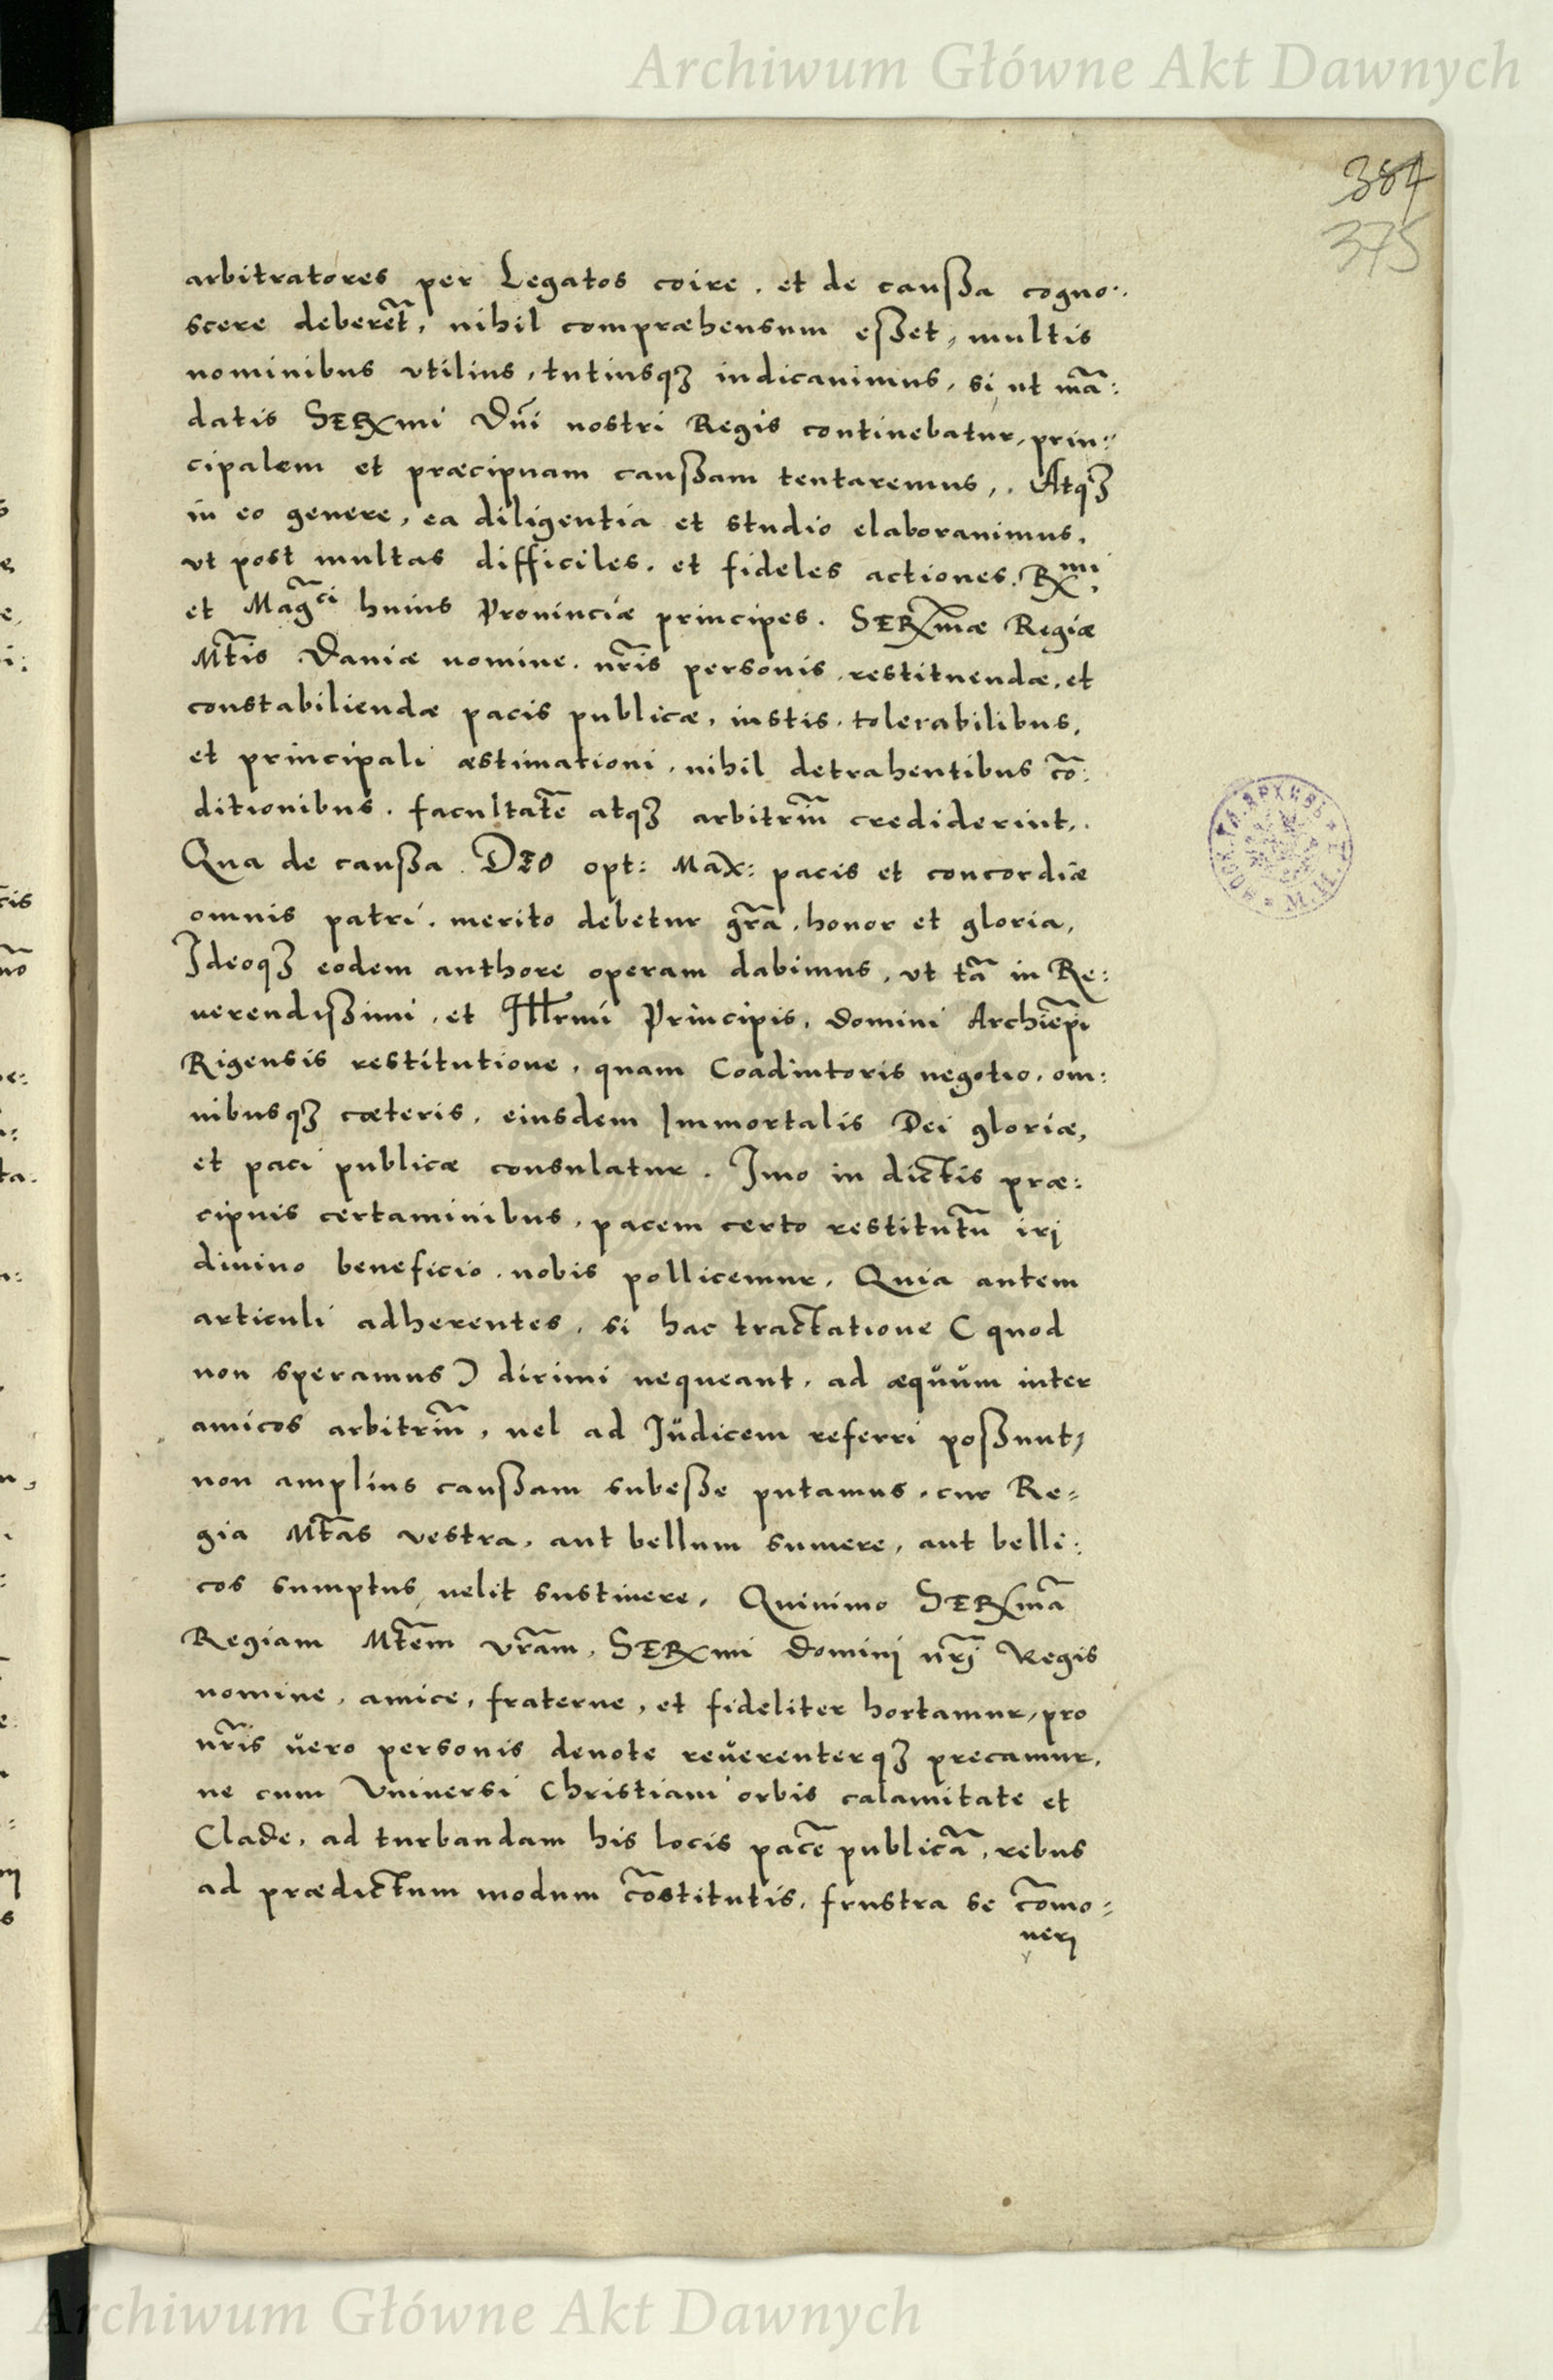 Archiwum Główne Akt Dawnych
384
375
arbitratores per Legatos coire. et de caußa cogno:
scere deberẽt, nihil compræhensum eßet, multis
nominibus vtilius, tutiusqꝫ iudicauimus, si, ut mã:
datis SERmi Dñi nostri Regis continebatur, prin:
cipalem et præcipuam caußam tentaremus,. Atqꝫ
in eo genere, ea diligentia et studio elaborauimus,
vt post multas difficiles. et fideles actiones. Rmi,
et Mag̃ci huius Prouinciæ principes. SERm̃æ Regiæ
Mt̃is Daniæ nomine. nr̃is personis, restituendæ, et
constabiliendæ pacis publicæ, iustis, tolerabilibus,
et principali æstimationi, nihil detrahentibus cõ:
ditionibus. facultatẽ atqꝫ arbitriũ crediderint,.
Qua de caußa. DEO opt: Max: pacis et concordiæ
omnis patri. merito debetur gr̃a, honor et gloria,
Ideoqꝫ eodem authore operam dabimus, vt tã in Re:
uerendißimi, et Illrmi Principis, domini Archiep̃i
Rigensis restitutione, quam Coadiutoris negotio, om:
nibusqꝫ cæteris, eiusdem Immortalis Dei gloriæ,
et paci publicæ consulatur. Imo in dictis præ:
cipuis certaminibus, pacem certo restitutũ irj
diuino beneficio. nobis pollicemur. Quia autem
articuli adherentes, si hac tractatione (quod
non speramus) dirimi nequeant, ad æquum inter
amicos arbitriũ, uel ad Judicem referri poßunt,
non amplius caußam subeße putamus. cur Re=
gia Mt̃as vestra, aut bellum sumere, aut belli:
cos sumptus uelit sustinere. Quinimo SERmã
Regiam Mt̃em vr̃am, SERmi dominj nr̃j Regis
nomine, amice, fraterne, et fideliter hortamur, pro
nr̃is uero personis deuote reuerenterqꝫ precamur,
ne cum Vniuersi Christiani orbis calamitate et
Clade, ad turbandam his locis pacẽ publicã, rebus
ad prædictum modum cõstitutis, frustra se cõmo=
uerj
Archiwum Główne Akt Dawnych